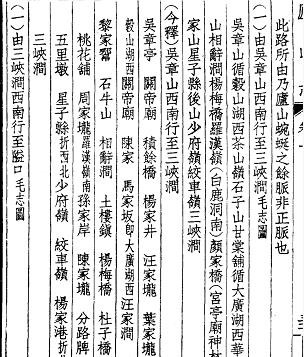 此路所由乃廬山蜿蜒之餘脈非正脈也
(一)由吳章山西南行至三峽澗毛志圖
吳章山循轂山湖西茶山嶺石子山甘棠舖循大廣湖西華
山相辭澗楊梅橋羅漢嶺(白鹿洞南)顏家橋(宮亭廟神林
家山星子縣後山少府嶺絞車嶺三峽澗
(今釋)吳章山西南行至三峽澗
吳章亭 關帝廟 積餘橋 楊家井 汪家壠 葉家壠
轂山湖西關帝廟 陳家 馬家坂卽大廣湖西汪家澗
黎家嘴 石牛山 相辭澗 土樓鎮 楊梅橋 杜子橋
桃花舖 周家壠羅漢嶺南孫家岸 陳家壠 分路牌
五里墩 星子縣折西北少府嶺 絞車嶺 楊家港折
三峽澗
(一)由三峽澗西南行至隘口毛志圖